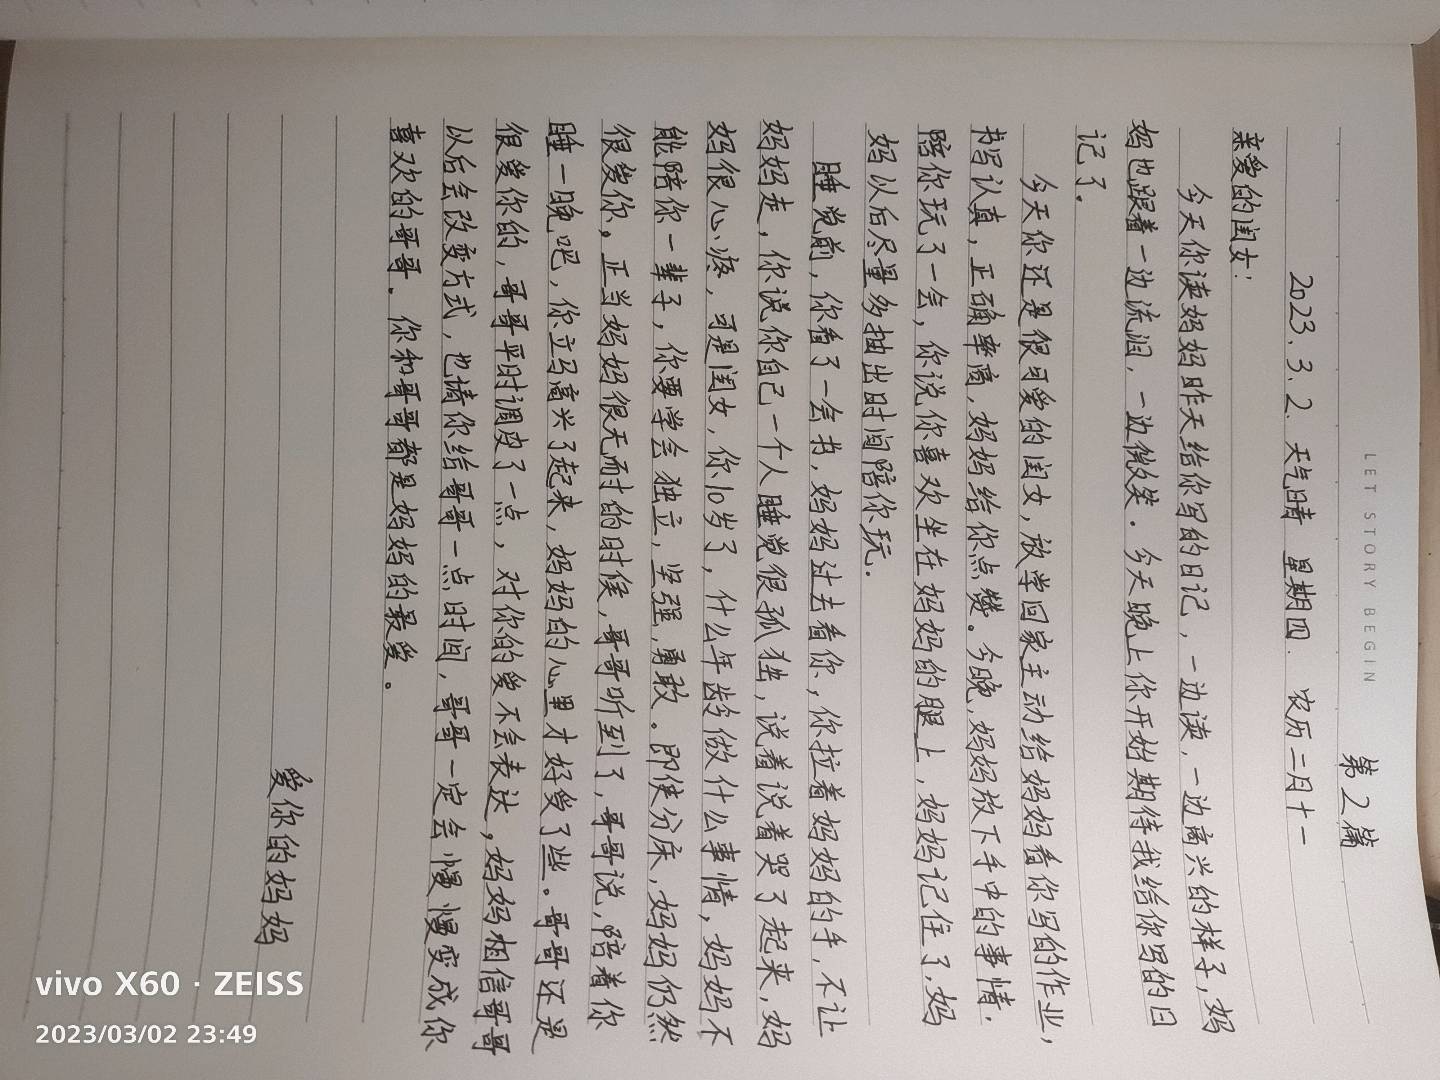 LET STORY BEGIN
第2篇
2023.3.2. 天气晴 星期四. 农历二月十一
亲爱的闺女:
今天你读妈妈昨天给你写的日记,一边读,一边高兴的样子,妈
妈也跟着一边流泪,一边微笑.今天晚上你开始期待我给你写的日
记了.
今天你还是很可爱的闺女,放学回家主动给妈妈看你写的作业,
书写认真,正确率高,妈妈给你点赞。今晚,妈妈放下手中的事情,
陪你玩了一会,你说你喜欢坐在妈妈的腿上,妈妈记住了,妈
妈以后尽量多抽出时间陪你玩.
睡觉前,你看了一会书,妈妈过去看你,你拉着妈妈的手,不让
妈妈走,你说你自己一个人睡觉很孤独,说着说着哭了起来,妈
妈很心疼,可是闺女,你10岁了,什么年龄做什么事情,妈妈不
能陪你一辈子,你要学会独立,坚强,勇敢。即使分床,妈妈仍然
很爱你。正当妈妈很无耐的时候,哥哥听到了,哥哥说,陪着你
睡一晚吧,你立马高兴了起来,妈妈的心里才好受了些。哥哥还是
很爱你的,哥哥平时调皮了一点,对你的爱不会表达,妈妈相信哥哥
以后会改变方式,也请你给哥哥一点时间,哥哥一定会慢慢变成你
喜欢的哥哥.你和哥哥都是妈妈的最爱。
爱你的妈妈
vivo X60 · ZEISS
2023/03/02 23:49